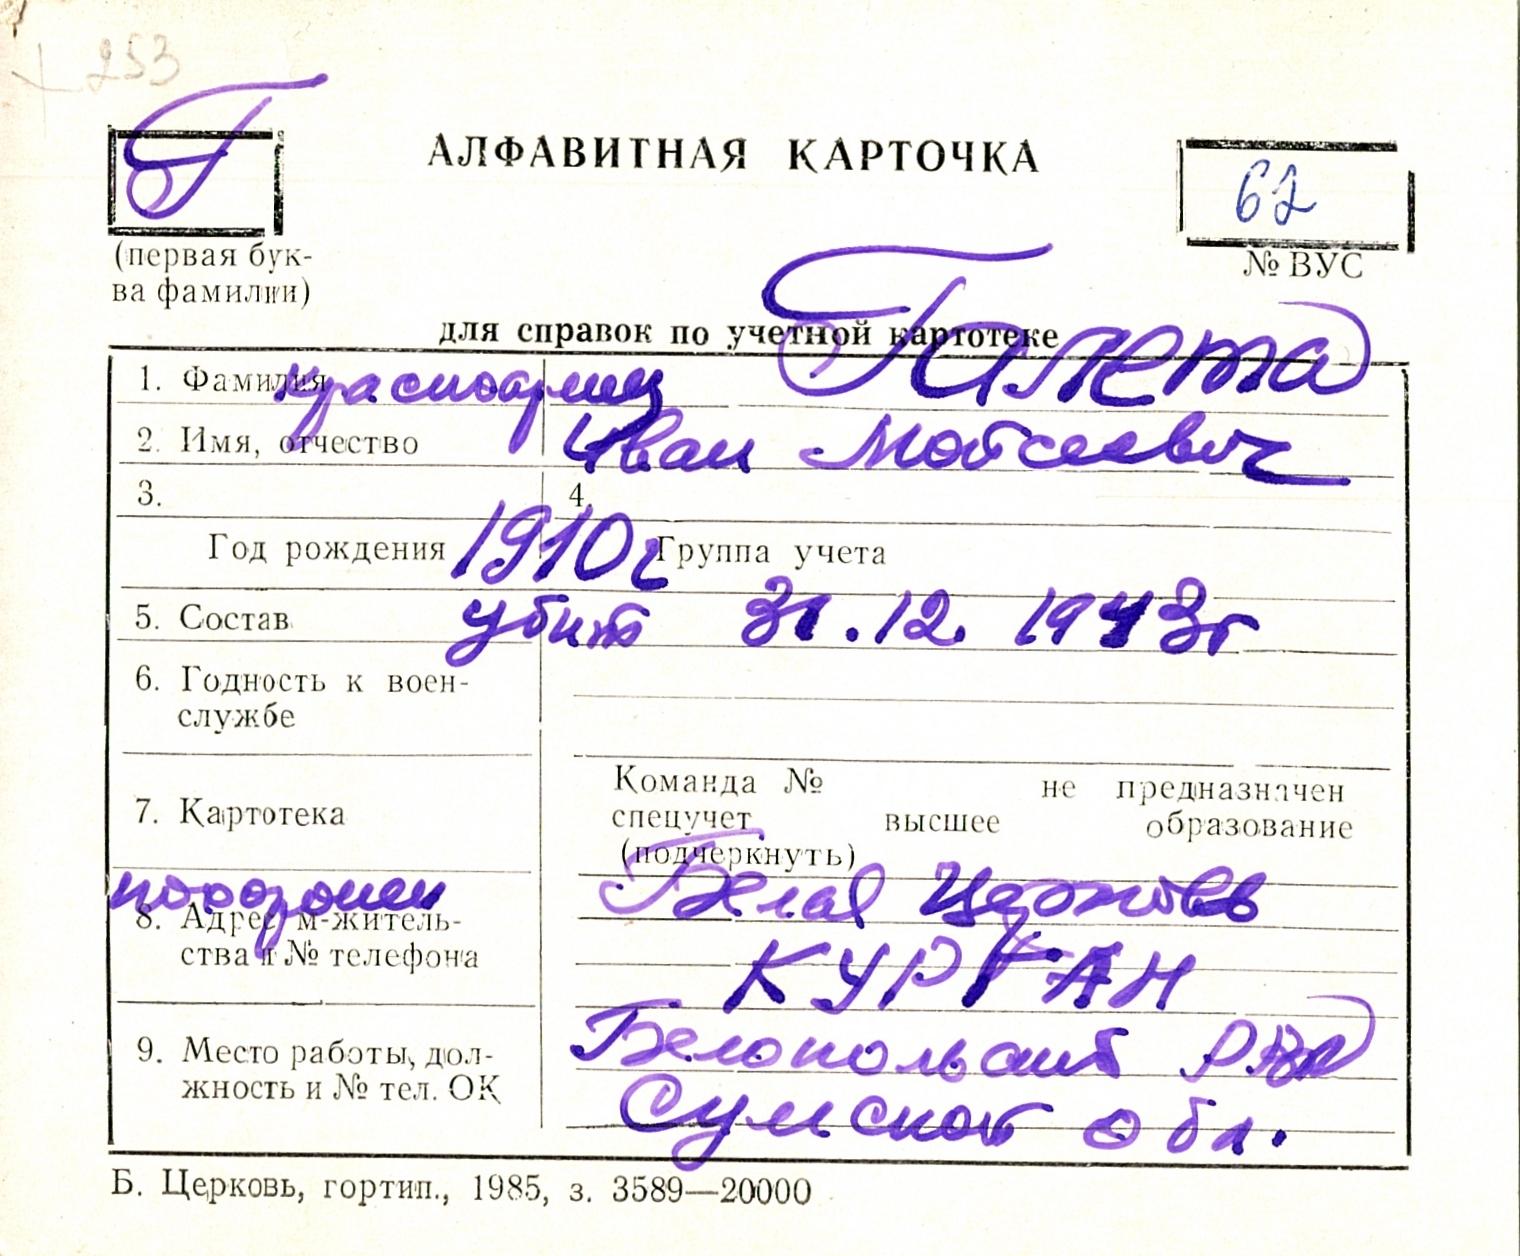 253
Г
АЛФАВИТНАЯ КАРТОЧКА
62
(первая бук-
ва фамилии)
№ ВУС
для справок по учетной картотеке
Галета
1. Фамилия
красноармец
2. Имя, отчество Иван Мойсеевич
3. 4.
Год рождения 1910г Группа учета
5. Состав убит 31.12.1943г
6. Годность к воен-
службе
7. Картотека
Команда № не предназначен
спецучет высшее образование
(подчеркнуть)
похоронен Белая Церковь
8. Адрес м-житель-
ства и № телефона
КУРГАН
9. Место работы, дол-
жность и № тел. ОК
Белопольский РВК
Сумской обл.
Б. Церковь, гортип., 1985, з. 3589—20000